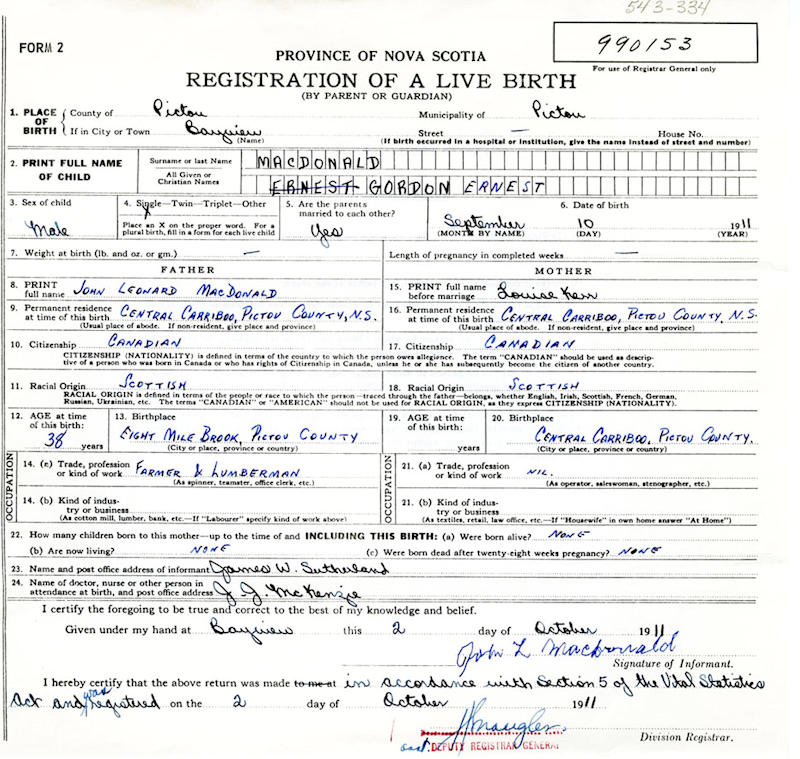 543-334
FORM 2
990153
For use of Registrar General only
PROVINCE OF NOVA SCOTIA
REGISTRATION OF A LIVE BIRTH
(BY PARENT OR GUARDIAN)
1. PLACE OF BIRTH County of Pictou Municipality of Pictou
If in City or Town Bayview Street — House No.
(Name) (If birth occurred in a hospital or institution, give the name instead of street and number)
2. PRINT FULL NAME OF CHILD Surname or last Name MACDONALD
All Given or Christian Names ERNEST GORDON ERNEST
3. Sex of child Male
4. Single—Twin—Triplet—Other X
Place an X on the proper word. For a plural birth, fill in a form for each live child
5. Are the parents married to each other? Yes
6. Date of birth
September 10 1911
(MONTH BY NAME) (DAY) (YEAR)
7. Weight at birth (lb. and oz. or gm.) — Length of pregnancy in completed weeks —
FATHER MOTHER
8. PRINT full name JOHN LEONARD MACDONALD
15. PRINT full name before marriage Louise Kerr
9. Permanent residence at time of this birth CENTRAL CARRIBOO, PICTOU COUNTY, N.S.
(Usual place of abode. If non-resident, give place and province)
16. Permanent residence at time of this birth CENTRAL CARRIBOO, PICTOU COUNTY, N.S.
(Usual place of abode. If non-resident, give place and province)
10. Citizenship CANADIAN 17. Citizenship CANADIAN
CITIZENSHIP (NATIONALITY) is defined in terms of the country to which the person owes allegiance. The term "CANADIAN" should be used as descrip-
tive of a person who was born in Canada or who has rights of Citizenship in Canada, unless he or she has subsequently become the citizen of another country.
11. Racial Origin SCOTTISH 18. Racial Origin SCOTTISH
RACIAL ORIGIN is defined in terms of the people or race to which the person—traced through the father—belongs, whether English, Irish, Scottish, French, German,
Russian, Ukrainian, etc. The terms "CANADIAN" or "AMERICAN" should not be used for RACIAL ORIGIN, as they express CITIZENSHIP (NATIONALITY).
12. AGE at time of this birth: 38 years
13. Birthplace EIGHT MILE BROOK, PICTOU COUNTY
(City or place, province or country)
19. AGE at time of this birth: years
20. Birthplace CENTRAL CARRIBOO, PICTOU COUNTY.
(City or place, province or country)
OCCUPATION
14. (c) Trade, profession or kind of work FARMER & LUMBERMAN
(As spinner, teamster, office clerk, etc.)
14. (b) Kind of indus-
try or business
(As cotton mill, lumber, bank, etc.—If "Labourer" specify kind of work above)
OCCUPATION
21. (a) Trade, profession or kind of work NIL.
(As operator, saleswoman, stenographer, etc.)
21. (b) Kind of indus-
try or business
(As textiles, retail, law office, etc.—If "Housewife" in own home answer "At Home")
22. How many children born to this mother—up to the time of and INCLUDING THIS BIRTH: (a) Were born alive? NONE
(b) Are now living? NONE (c) Were born dead after twenty-eight weeks pregnancy? NONE
23. Name and post office address of informant James W. Sutherland
24. Name of doctor, nurse or other person in attendance at birth, and post office address J. J. McKenzie
I certify the foregoing to be true and correct to the best of my knowledge and belief.
Given under my hand at Bayview this 2 day of October 1911
John L Macdonald
Signature of Informant.
I hereby certify that the above return was made to me at in accordance with Section 5 of the Vital Statistics
Act and was registered on the 2 day of October 1911
DEPUTY REGISTRAR GENERAL
Division Registrar.